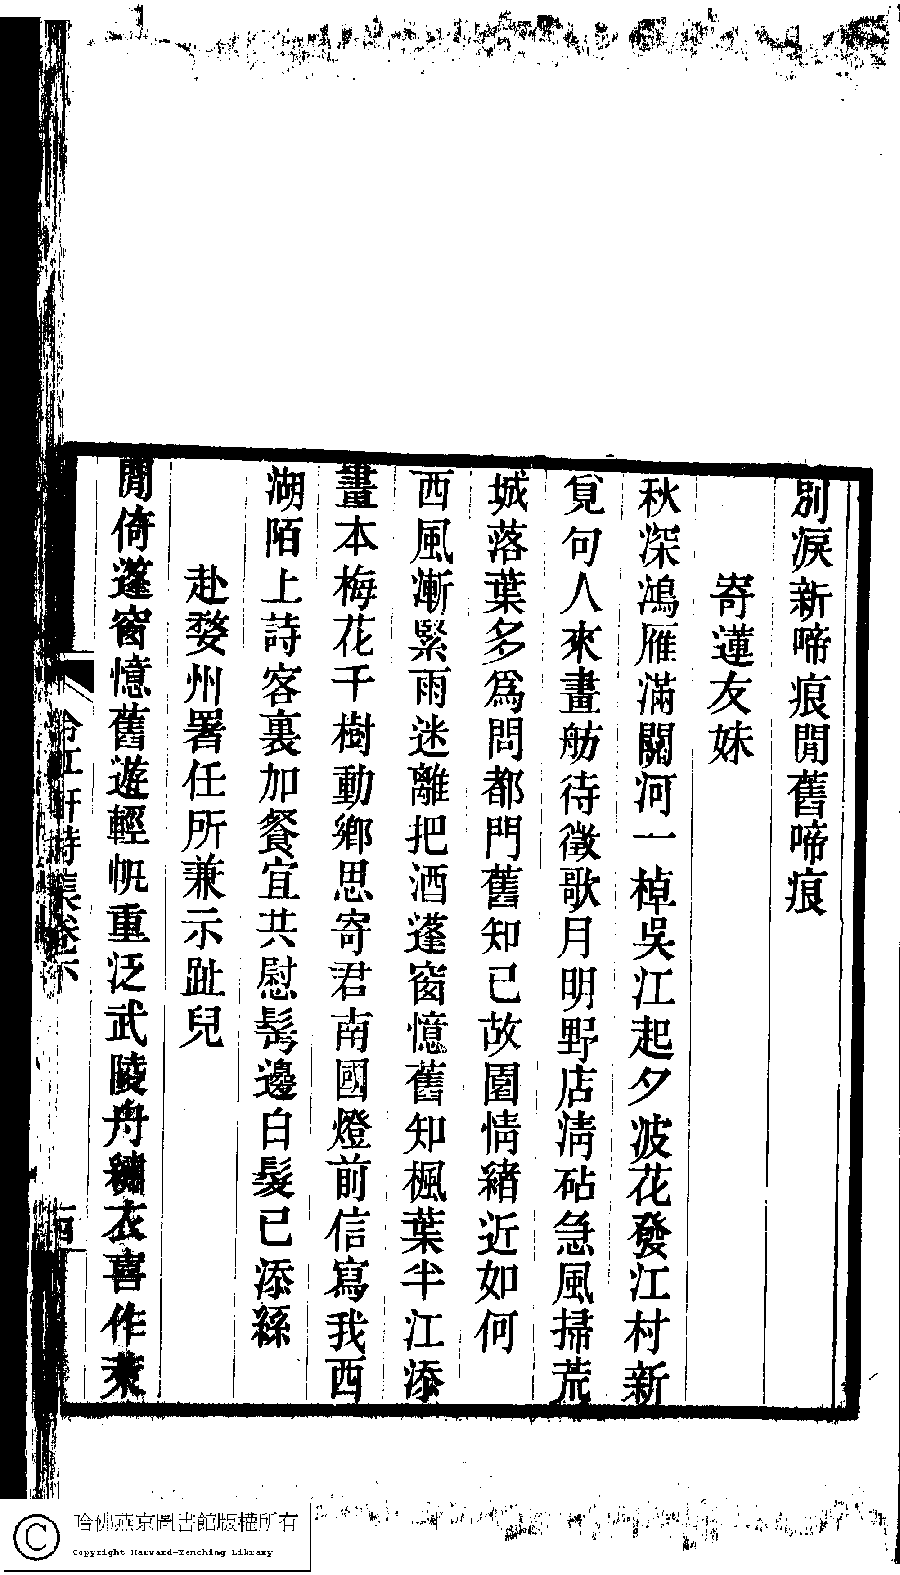 別淚新啼痕閒舊啼痕
寄蓮友妹
秋深鴻雁滿關河一棹吳江起夕波花發江村新
覓句人來畫舫待徵歌月明野店淸砧急風掃荒
城落葉多爲問都門舊知已故園情緒近如何
西風漸緊雨迷離把酒蓬窗憶舊知楓葉半江添
畫本梅花千樹動鄉思寄君南國燈前信寫我西
湖陌上詩客裏加餐宜共慰髩邊白髮已添絲
赴婺州署任所兼示趾兒
閒倚蓬窗憶舊遊輕帆重泛武陵舟綵衣喜作萊
冷紅軒詩集卷下
哈佛燕京圖書館版權所有
Copyright Harvard-Yenching Library